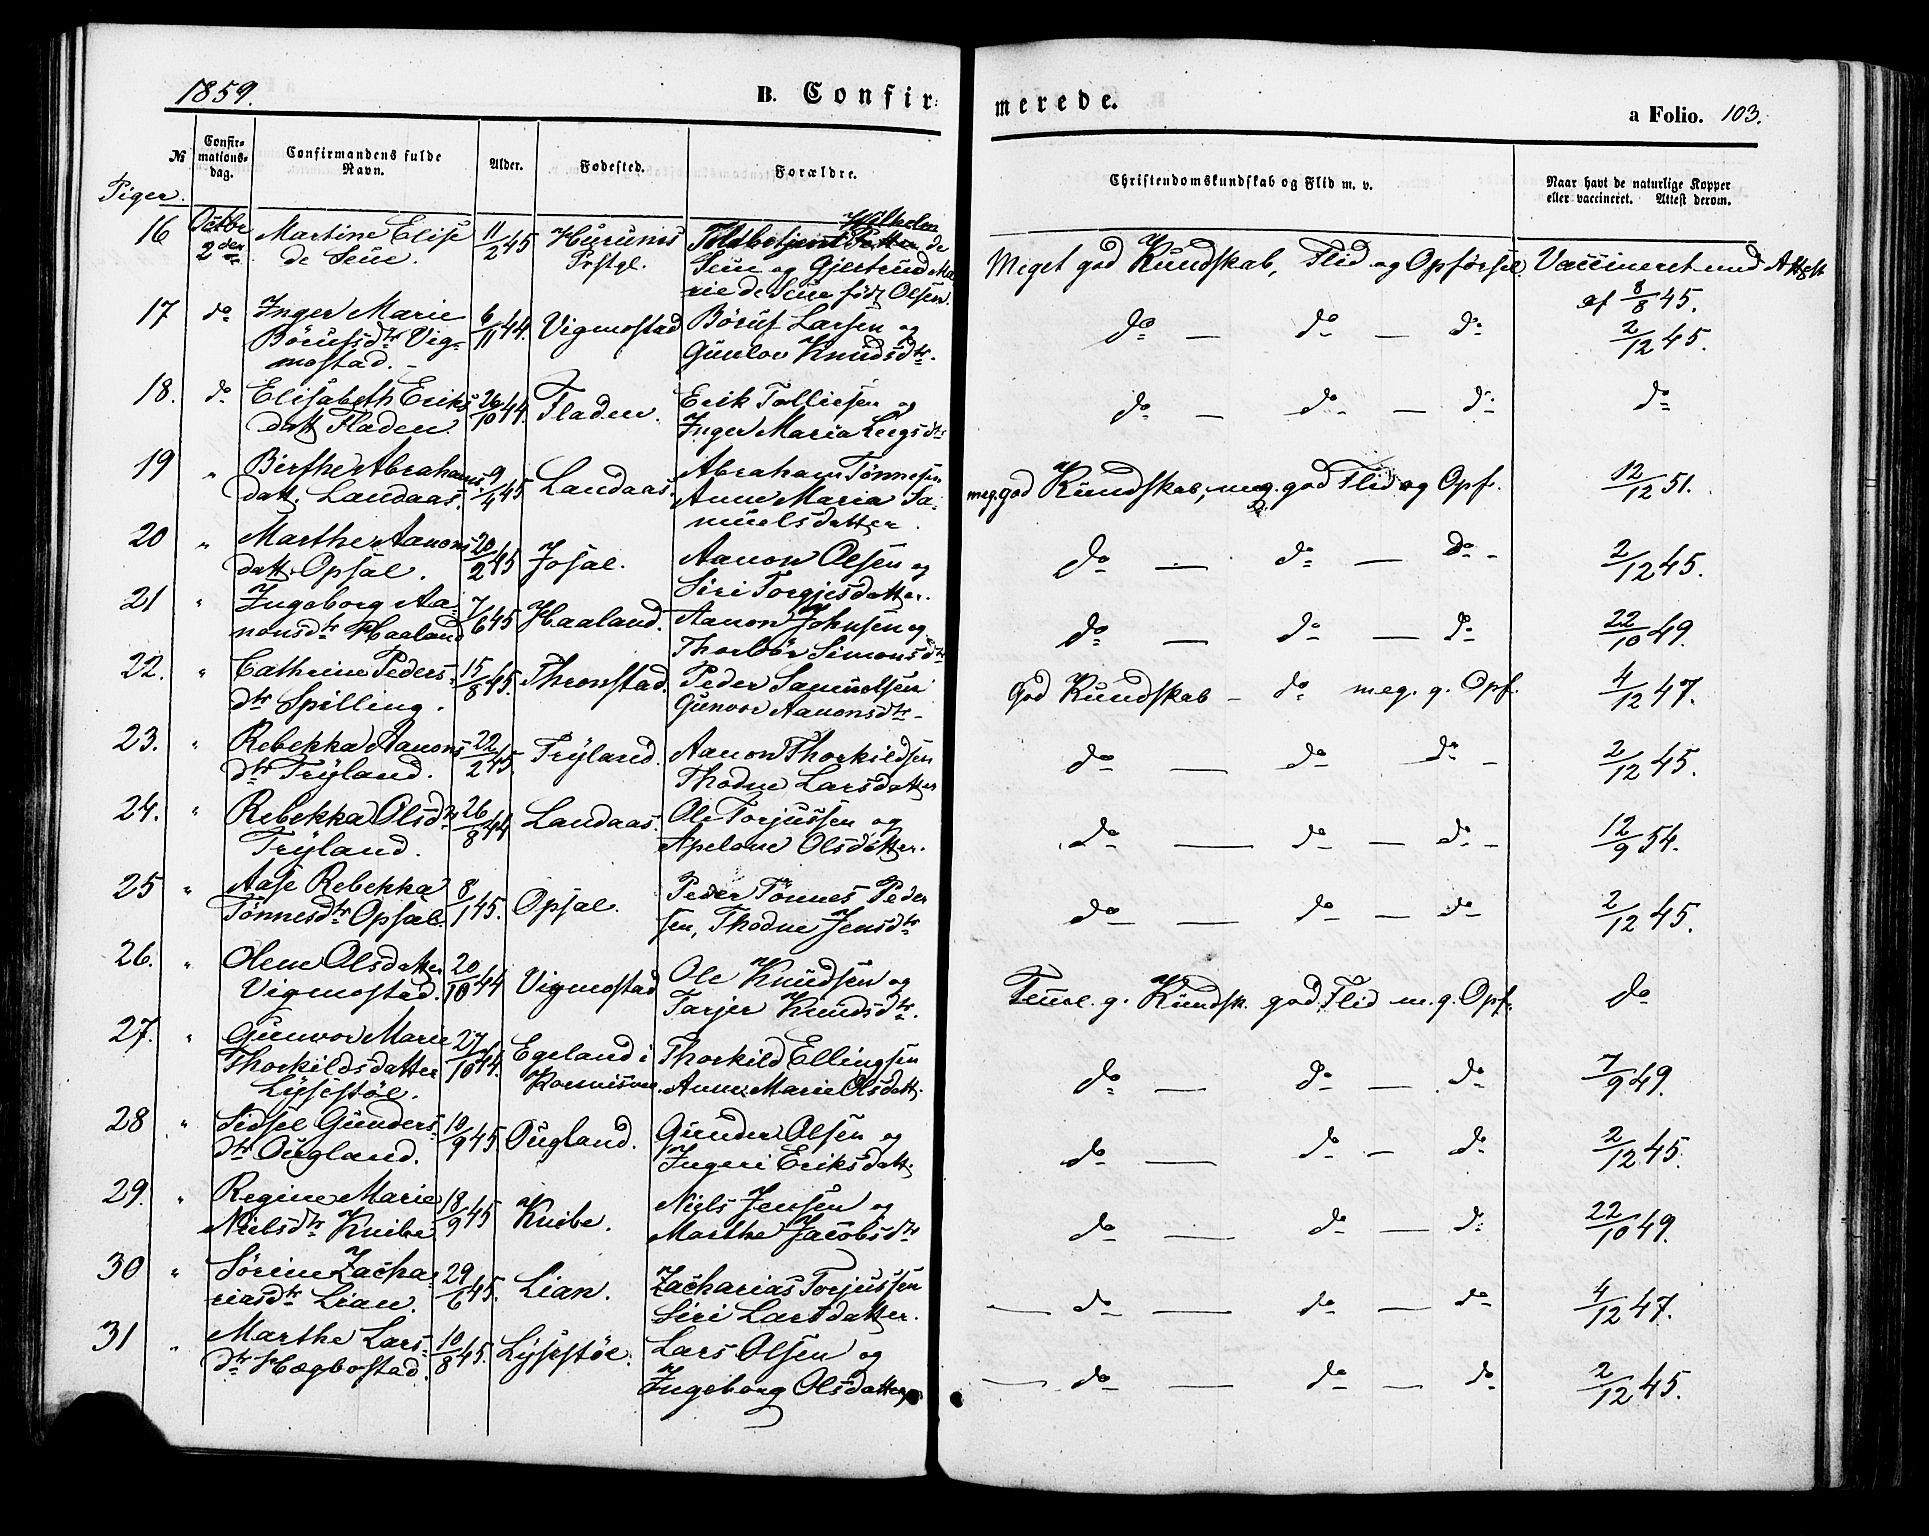 1859.
B. Confirmerede.
a Folio. 103.
№
Confirmationsdag.
Confirmandens fulde Navn.
Alder.
Fødested.
Forældre.
Christendomskundskab og Flid m. v.
Naar havt de naturlige Kopper eller vaccineret. Attest derom.
Piger.
16 Octbr 2den Martine Elise 11/2 45 Huruums Toldbetjent Wilhelm de
de Seue. Prstgl. Seue og Gjertrud Ma-
rie de Seue født Olsen.
Meget god Kundskab, Flid og Opførsel Vaccineret med Attest
af 8/8 45.
17 do Inger Marie 6/11 44. Vigmostad Børuf Larsen og do — do — do 2/12 45.
Børufsdtr Vig- Gunlov Knudsdtr.
mostad.
18. do Elisabeth Eriks 26/10 44. Fladen. Erik Tollisen og do — do — do do
datt Fladen. Inger Maria Leegsdtr
19 " Birthe Abrahams 9/1 45 Landaas. Abraham Tønnesen meg. god Kundskab, meg. god Flid og Opf. 12/12 51.
datt. Landaas. Anne Maria Sa-
muelsdatter.
20 " Marthe Aanons 20/2 45 Josal. Aanon Olsen og do — do — do - 2/12 45.
datt. Opsal. Siri Torgjesdatter.
21 " Ingeborg Aa- 7/6 45 Haaland. Aanon Johnsen og do — do — do 22/10 49.
nonsdtr Haaland Thorbør Simonsdtr
22. " Cathrine Peders- 15/8 45. Thronstad. Peder Samuelsen God Kundskab - do meg. g. Opf. 4/12 47.
dtr Spilling. Gunvor Aanonsdtr-
23. " Rebekka Aanons 22/2 45. Trÿland. Aanon Thorkildsen do — do do - 2/12 45.
dtr Trÿland. Thodne Larsdatter
24. " Rebekka Olsdtr 26/8 44 Landaas. Ole Torjussen og do — do — do - 12/9 54.
Trÿland. Apelone Olsdatter.
25 " Aase Rebekka 8/1 45. Opsal. Peder Tønnes Peder do — do — do 2/12 45.
Tønnesdtr Opsal. sen, Thodne Jensdtr
26. " Olene Olsdatter 20/10 44 Vigmostad Ole Knudsen og Temel. g. Kundsk. god Flid m. g. Opf. do
Vigmostad. Tarjer Knudsdtr.
27. " Gunvor Marie 27/10 44. Egeland i Thorkild Ellingsen do — do — do 7/9 49.
Thorkildsdatter Anne Marie Olsdatt.
Lÿsestøl.
28 " Sidsel Gunders- 10/9 45 Ougland. Gunder Olsen og do — do — do 2/12 45.
dtr Ougland. Ingeri Eriksdatt.
29. " Regine Marie 18/9 45 Knibe. Niels Jensen og do — do — do 22/10 49.
Nielsdtr Knibe. Marthe Jacobsdtr
30 " Sørine Zacha- 29/6 45. Lian. Zacharias Torjussen — do — do — do 4/12 47.
riasdtr Lian. Siri Larsdatter.
31 " Marthe Lars- 10/8 45. Lÿsestøl. Lars Olsen og — do — do — do 2/12 45.
dtr Hægbostad. Ingeborg Olsdatter